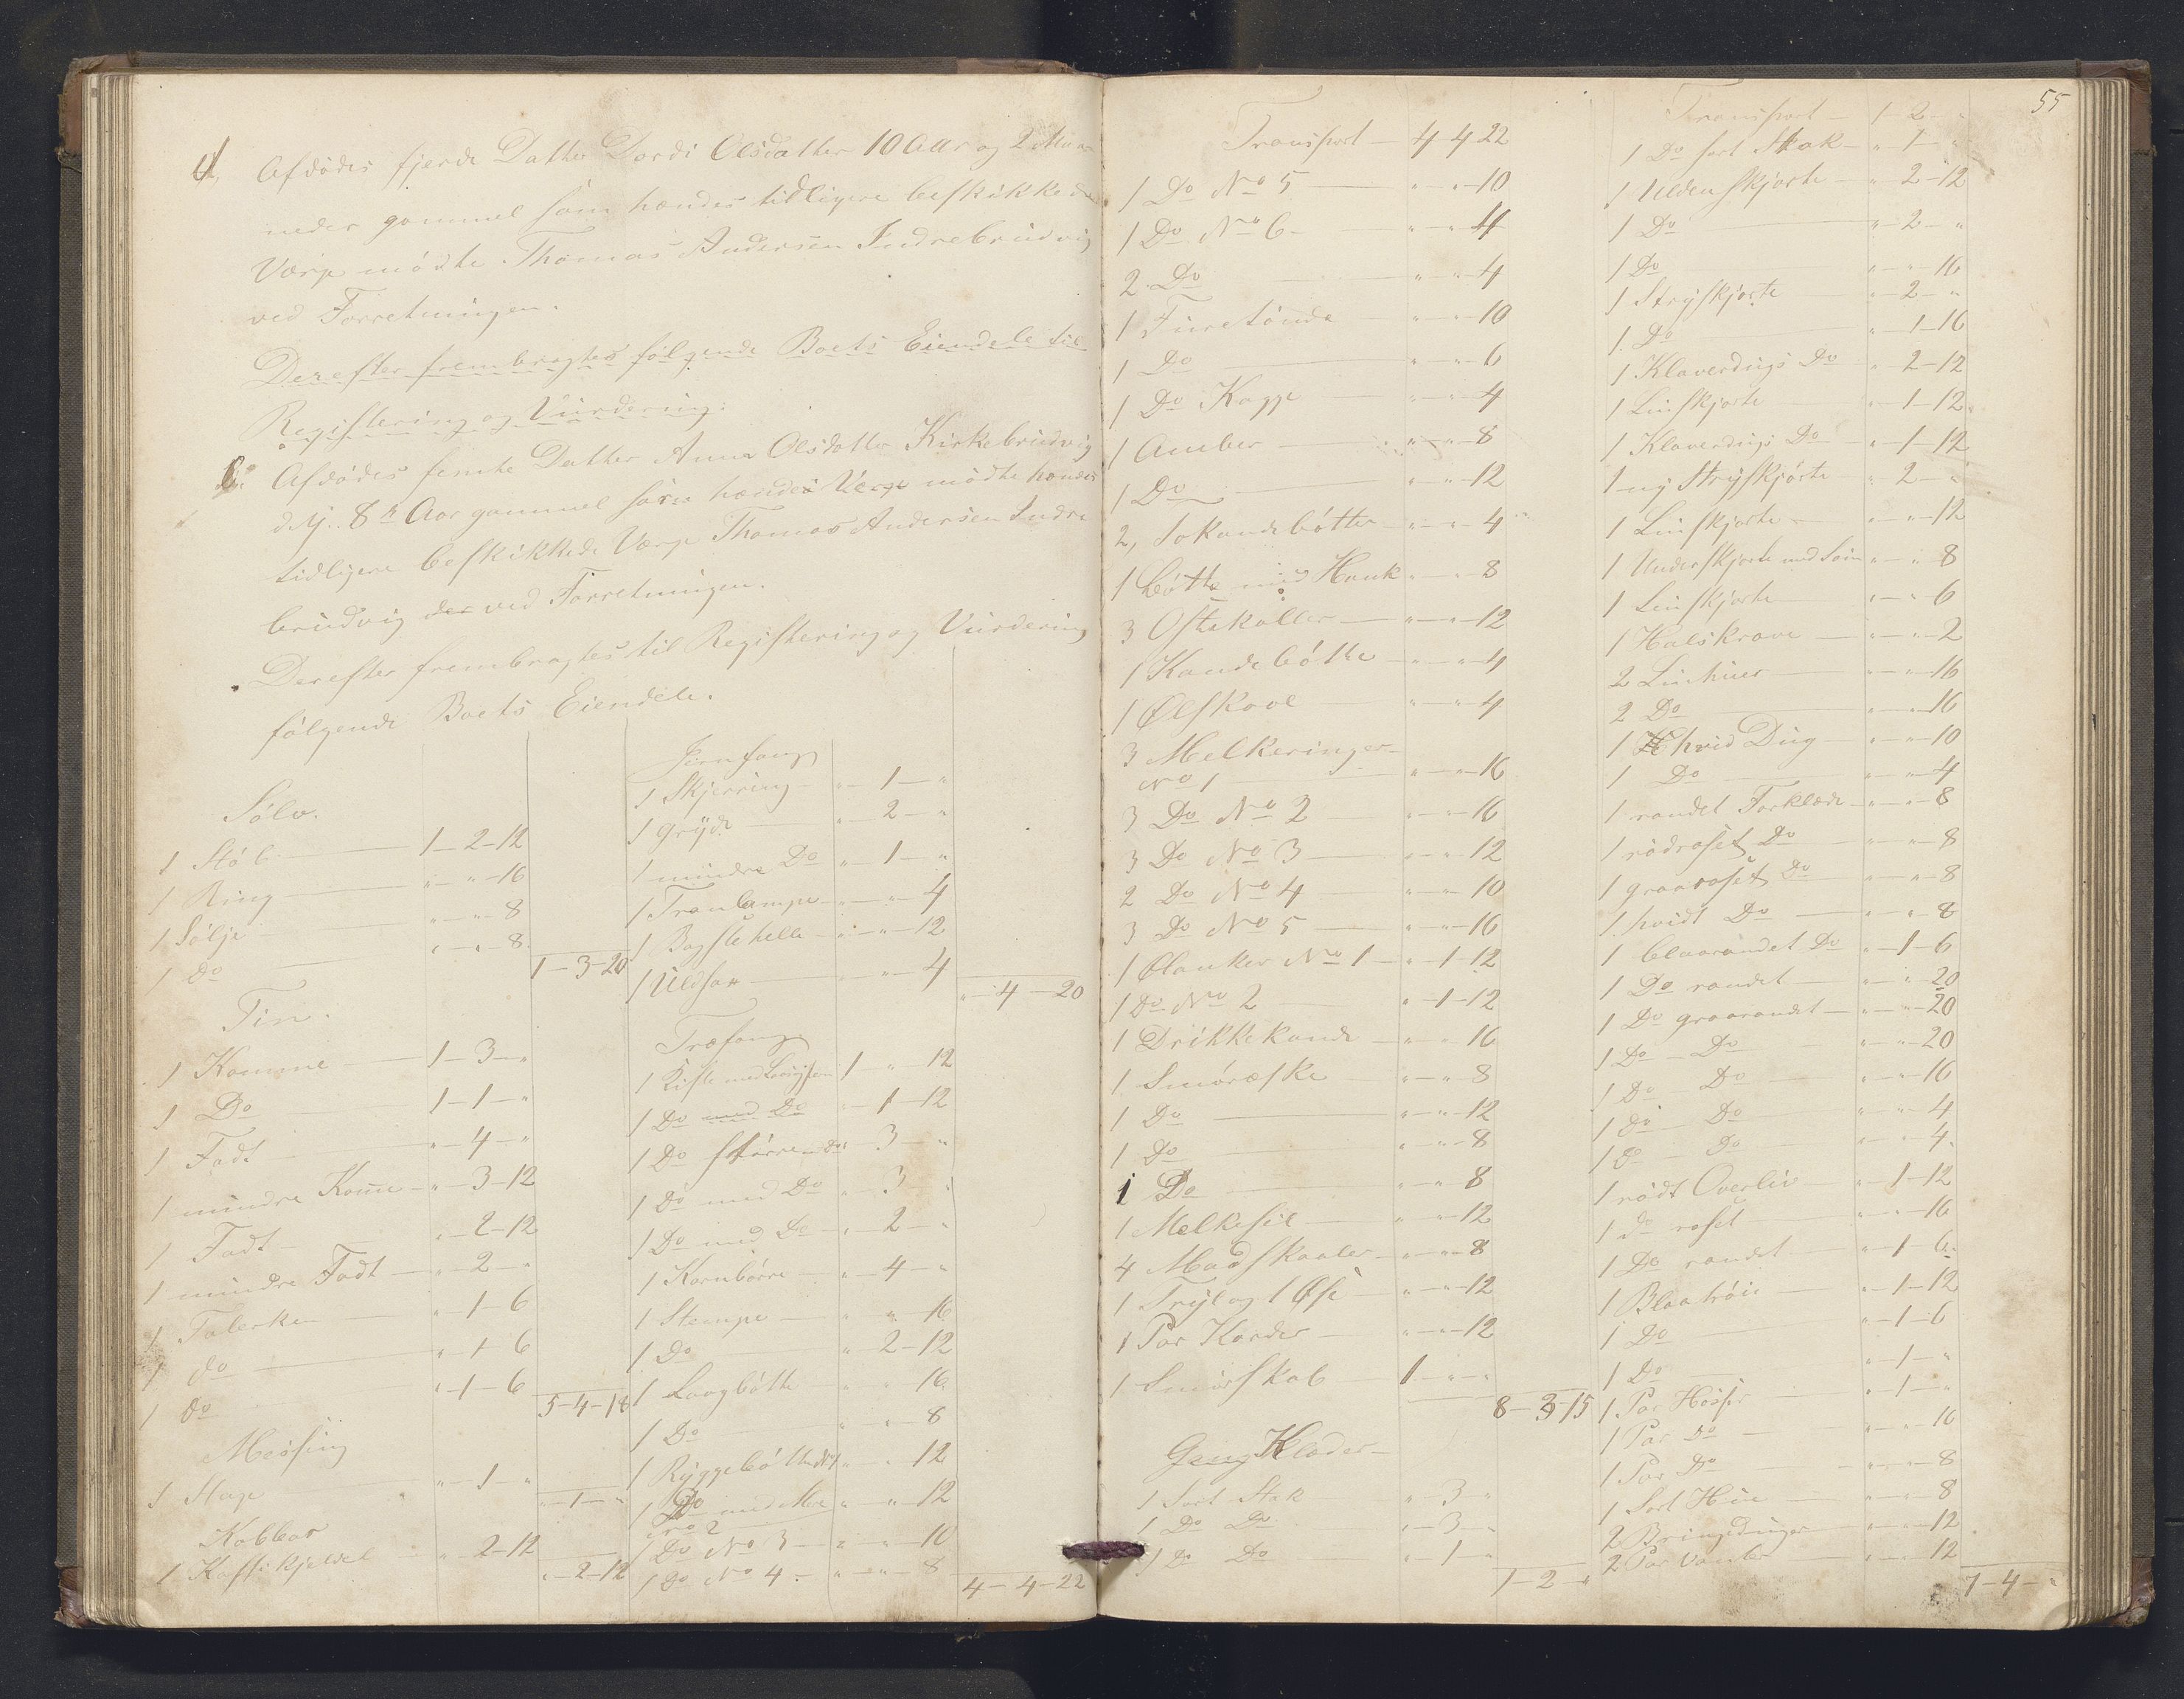 4, Afdødes fjerde Datter Dordi Olsdatter 10 Aar og 2 Maa
neder gammel som hendes tidligere beskikkede
Værje mødte Thomas Andersen Indrebrudvig
ved Forretningen.
Derefter frembragtes følgende Boets Eiendele til
Registering og Vurdering:
Afdødes femte Datter Anna Olsdatter Kirkebrudvig
8 Aar gammel som hendes Værge mødte hendes
tidligere beskikkede Værge Thomas Andersen Indre
brudvig der ved Forretningen.
Derefter frembragtes til Registering og Vurdering
følgende Boets Eiendele.
Sølv.
1 Støb 1-2-12
1 Ring " - " -16
1 Sølje " - " -8
1 Do " - " -8
1-3-20
Tin.
1 Kamme 1-3-"
1 Do 1-1-"
1 Fadt "-4-"
1 mindre Kame "-3-12
1 Fadt "-2-12
1 mindre Fadt "-2-"
1 Talerken "-1-6
1 do "-1-6
1 do "-1-6
5-4-18
Mesing
1 Stage "-1-"
"-1-"
Kobber
1 Kaffikjedel "-2-12
"-2-12
Jernfang
1 Skjerring "-1-"
1 Gryde "-2-"
1 mindre Do "-1-"
1 Tranlampe "-"-4
1 Bagstehelle "-"-12
1 Uldsax "-"-4
"-4-20
Træfang
1 Kiste med 1-"-12
1 Do med Do "-1-12
1 Do større "-3-"
1 Do med Do "-3-"
1 Do med Do "-2-"
1 Kornbørre "-4-"
1 Stempe "-"-16
1 Do "-2-12
1 Laagbøtte "-"-16
1 Do "-"-8
1 Ryggebøtte No 1 "-"-12
1 Do "-"-12
No 2
1 Do No 3 "-"-10
1 Do No 4 "-"-8
4-4-22
Transport 4-4-22
1 Do No 5 "-"-10
1 Do No 6 "-"-4
2 Do "-"-4
1 Furetønde "-"-10
1 Do "-"-6
1 Do Kagge "-"-4
1 Amber "-"-8
1 Do "-"-12
2, "-"-4
1 bøtte med Hank "-"-8
3 Ostekoller "-"-12
1 Kandebøtte "-"-4
1 Ølskaal "-"-4
3 Melkeringer
No 1 "-"-16
3 Do No 2 "-"-16
3 Do No 3 "-"-12
2 Do No 4 "-"-10
3 Do No 5 "-"-16
1 No 1 "-1-12
1 Do No 2 "-1-12
1 Drikkekande "-"-16
1 Smøræske "-"-8
1 Do "-"-12
1 Do "-"-8
1 Do "-"-8
1 Melkesil "-"-12
4 Madskaaler "-"-8
1 Tryl og 1 Øse "-"-12
1 Par Karder "-"-12
1 Smørskab 1-"-"
8-3-15
Gang Klæder
1 Sort Stak "-3-"
1 Do Do "-3-"
1 Do Do "-1-"
1-2-"
55
Transport 1-2-"
1 Do sort Stak "-1-"
1 Uldenskjorte "-2-12
1 Do "-2-"
1 Do "-"-16
1 Stryskjorte "-2-"
1 Do "-1-16
1 Klaverdugs Do "-2-12
1 Linskjorte "-1-12
1 Klaverdugs Do "-1-12
1 ny Stryskjørte "-2-"
1 Linskjorte "-"-12
1 Underskjorte med "-"-8
1 Linskjorte "-"-6
1 Halskrave "-"-2
2 Linhuer "-"-16
2 Do "-"-16
1 hvid Dug "-"-10
1 Do "-"-4
1 randet Forklæde "-"-8
1 rødroset Do "-"-8
1 graaroset Do "-"-8
1 hvidt Do "-"-8
1 blaarandet Do "-1-6
1 Do randet "-"-20
1 Do graarandet "-"-20
1 Do Do "-"-20
1 Do Do "-"-16
1 Do Do "-"-4
1 Do Do "-"-4
1 rødt Overliv "-1-12
1 do roset "-"-16
1 Do randet "-1-6
1 Blaatrøie "-1-12
1 Do "-1-6
1 Do "-1-"
1 Par Hoser "-1-"
1 Par Do "-"-16
1 Par Do "-"-8
1 Sort Hue "-"-8
2 Bringeduger "-"-12
2 Par Vanter "-"-12
7-4-"